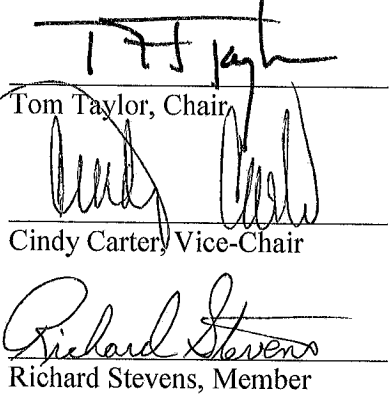 Tom Taylor, Chair
Cindy Carter
Cindy Carter, Vice-Chair
Richard Stevens
Richard Stevens, Member